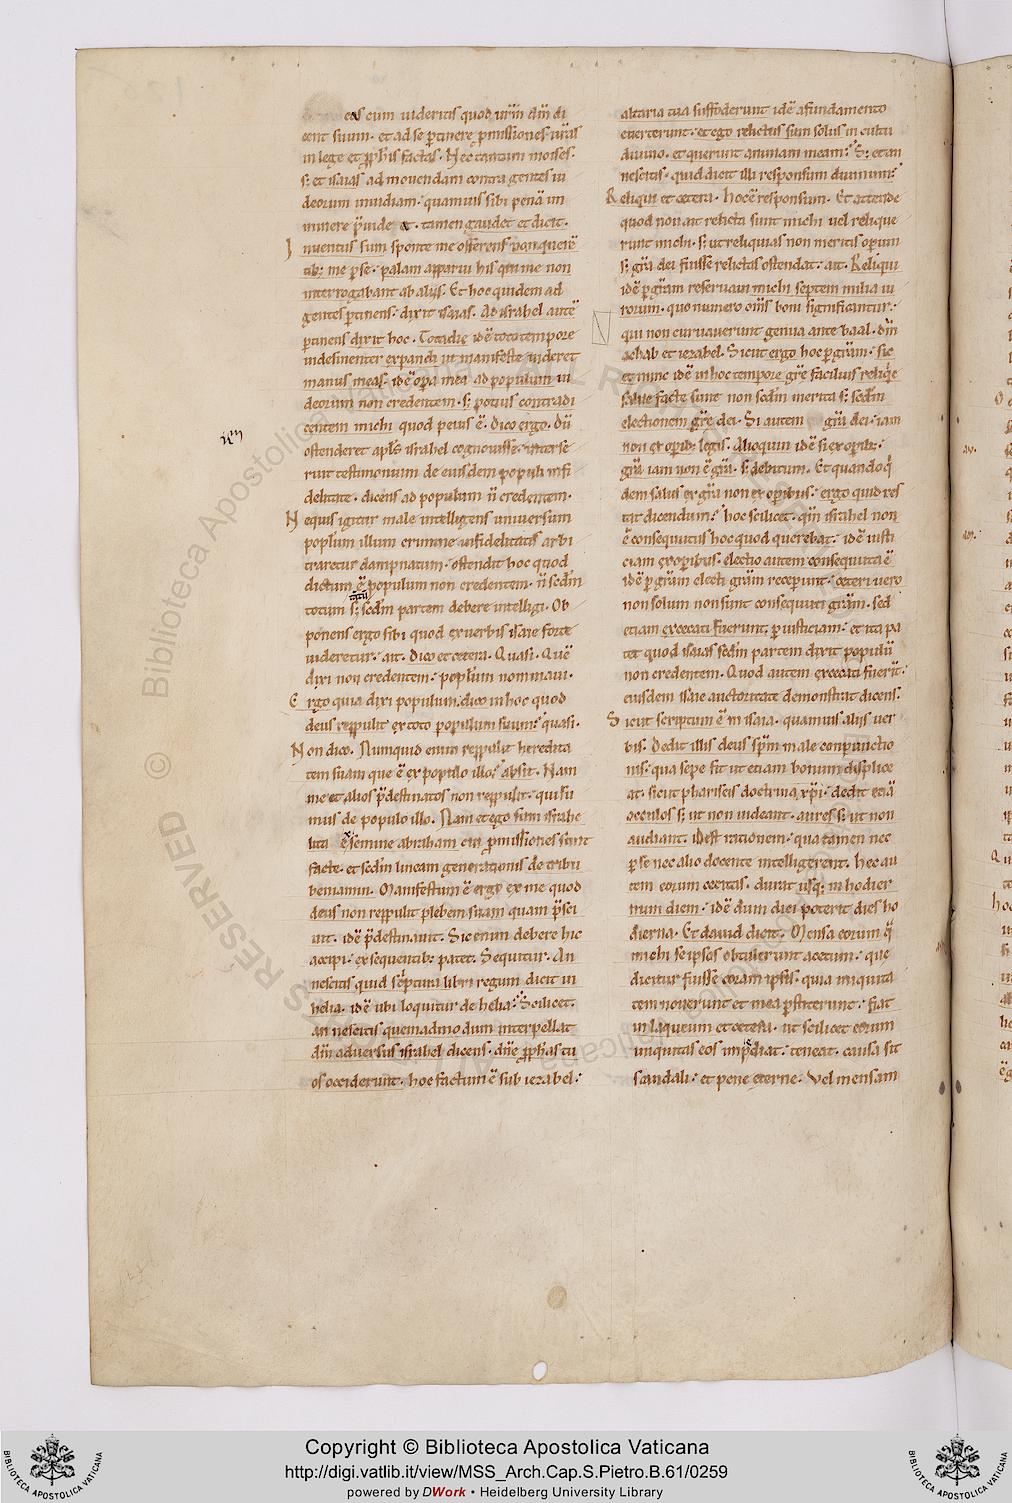 eos cum uideritis quod ur̅m̅ dm̅ di
cent suum. et ad se ꝑtinere ꝓmissiones ur̅as
in lege et ꝓph̅is factas. Nec tantum moises.
s; et isaias ad mouendam contra gentes iu
deorum inuidiam. quamuis sibi pena̅ im
minere p̅uide at. tamen gaudet et dicit.
Inuentus sum sponte me offerens non querē
tib; me ꝑ se. palam apparui his qui me non
interrogabant ab aliis. Et hoc quidem ad
gentes ꝑtinens. dixit isaias. Ad israhel aute̅
ꝑtinens dixit hoc. Tota die ide̅ toto tempore
indesinenter expandi in manifesto uideret
manus meas. ide̅ opa̅ mea ad populum iu
deorum non credentem. s; potius contradi
centem michi quod peius e̅. Dico ergo. Du̅
ostenderet apl̅s israhel cognouisse. interse
ruit testimonium de eiusdem populi infi
delitate. dicens ad populum n̅ credentem.
Nequis igitur male intelligens uniuersum
populum illum crimine infidelitatis arbi
traretur dampnatum. ostendit hoc quod
dictum e̅ populum non credentem. n̅ scd̅m
totum s; scd̅m partem debere intelligi. Ob
ponens ergo sibi quod ex uerbis isaie forte
uideretur. ait. Dico et cetera. Quasi. Que̅
dixi non credentem. populum nominaui.
Ergo quia dixi populum. dico in hoc quod
deus reppulit ex toto populum suum. quasi.
Non dico. Numquid enim reppulit heredita
tem suam que e̅ ex populo illo. absit. Nam
me et alios p̅destinatos non reppulit. qui su
mus de populo illo. Nam et ego sum israhe
lita ex semine abraham cui ꝓmissiones sunt
facte. et scd̅m lineam generationis de tribu
beniamin. Manifestum e̅ ergo ex me quod
deus non reppulit plebem suam quam p̅sci
uit. ide̅ p̅destinauit. Sic enim debere hic
accipi. ex sequentib; patet. Sequitur. An
nescitis quid sc̅ptura libri regum dicit in
helia. ide̅ ubi loquitur de helia. Scilicet.
an nescitis quemadmodum interpellat
dm̅ aduersus israhel dicens. dn̅e ꝓph̅as tu
os occiderunt. hoc factum e̅ sub iezabel.
altaria tua suffoderunt ide̅ a fundamento
euerterunt. et ego relictus sum solus in cultu
diuino. et querunt animam meam. S; et an
nescitis. quid dicit illi responsum diuinum.
Reliqui et cetera. hoc e̅ responsum. Et attende
quod non ait relicta sunt michi uel relique
runt michi. s; ut reliquias non meritis operum
s; gr̅a dei fuisse relictas ostendat. ait. Reliqui
ide̅ ꝑ gr̅am reseruaui michi septem milia ui
rorum. quo numero om̅s boni significantur.
qui non curuauerunt genua ante baal. dn̅i
achab et iezabel. Sicut ergo hoc ꝑ gr̅am. sic
et nunc ide̅ in hoc tempore gr̅e facilius reliqe̅
salue facte sunt non scd̅m merita s; scd̅m
electionem gr̅e dei. Si autem gr̅a dei. iam
non ex operib; legis. Alioquin ide̅ si ex operib;
gr̅a iam non e̅ gr̅a. s; debitum. Et quandoq̅
dem salus ex gr̅a non ex operibus. ergo quid res
tat dicendum. hoc scilicet. qm̅ israhel non
e̅ consequutus hoc quod querebat. ide̅ iusti
ciam ex operibus. electio autem consequuta e̅
ide̅ ꝑ gr̅am electi gr̅am receperunt. ceteri uero
non solum non sunt consequuti gr̅am. sed
etiam excecati fuerunt. ꝑ iusticiam. et ita pa
tet quod isaias scd̅m partem dixit populu̅
non credentem. Quod autem excecati fueri̅t.
eiusdem isaie auctoritate demonstrat dicens.
Sicut scriptum e̅ in isaia. quamuis aliis uer
bis. Dedit illis deus sp̅m male conpunctio
nis. qua sepe fit ut etiam bonum displice
at. sicut phariseis doctrina xp̅i. dedit etia̅
oculos s; ut non uideant. aures s; ut non
audiant. idest rationem. qua tamen nec
ꝑ se nec alio docente intelligerent. hec au
tem eorum cecitas. durat usq; in hodier
num diem. ide̅ dum dici poterit dies ho
dierna. Et dauid dicit. Mensa eorum q̅
michi se ipsos obtulerunt acetum. que
dicitur fuisse coram ipsis. quia iniquita
tem nouerunt et in ea ꝑstiterunt. fiat
in laqueum et cetera. ut scilicet eorum
iniquitas eos impediat. teneat. causa sit
scandali. et pene eterne. Vel mensam
Copyright © Biblioteca Apostolica Vaticana
http://digi.vatlib.it/view/MSS_Arch.Cap.S.Pietro.B.61/0259
powered by DWork • Heidelberg University Library